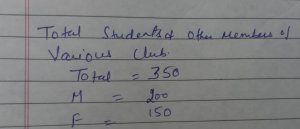 Total Students of Other Members of
Various Club.
Total = 350
M = 200
F = 150